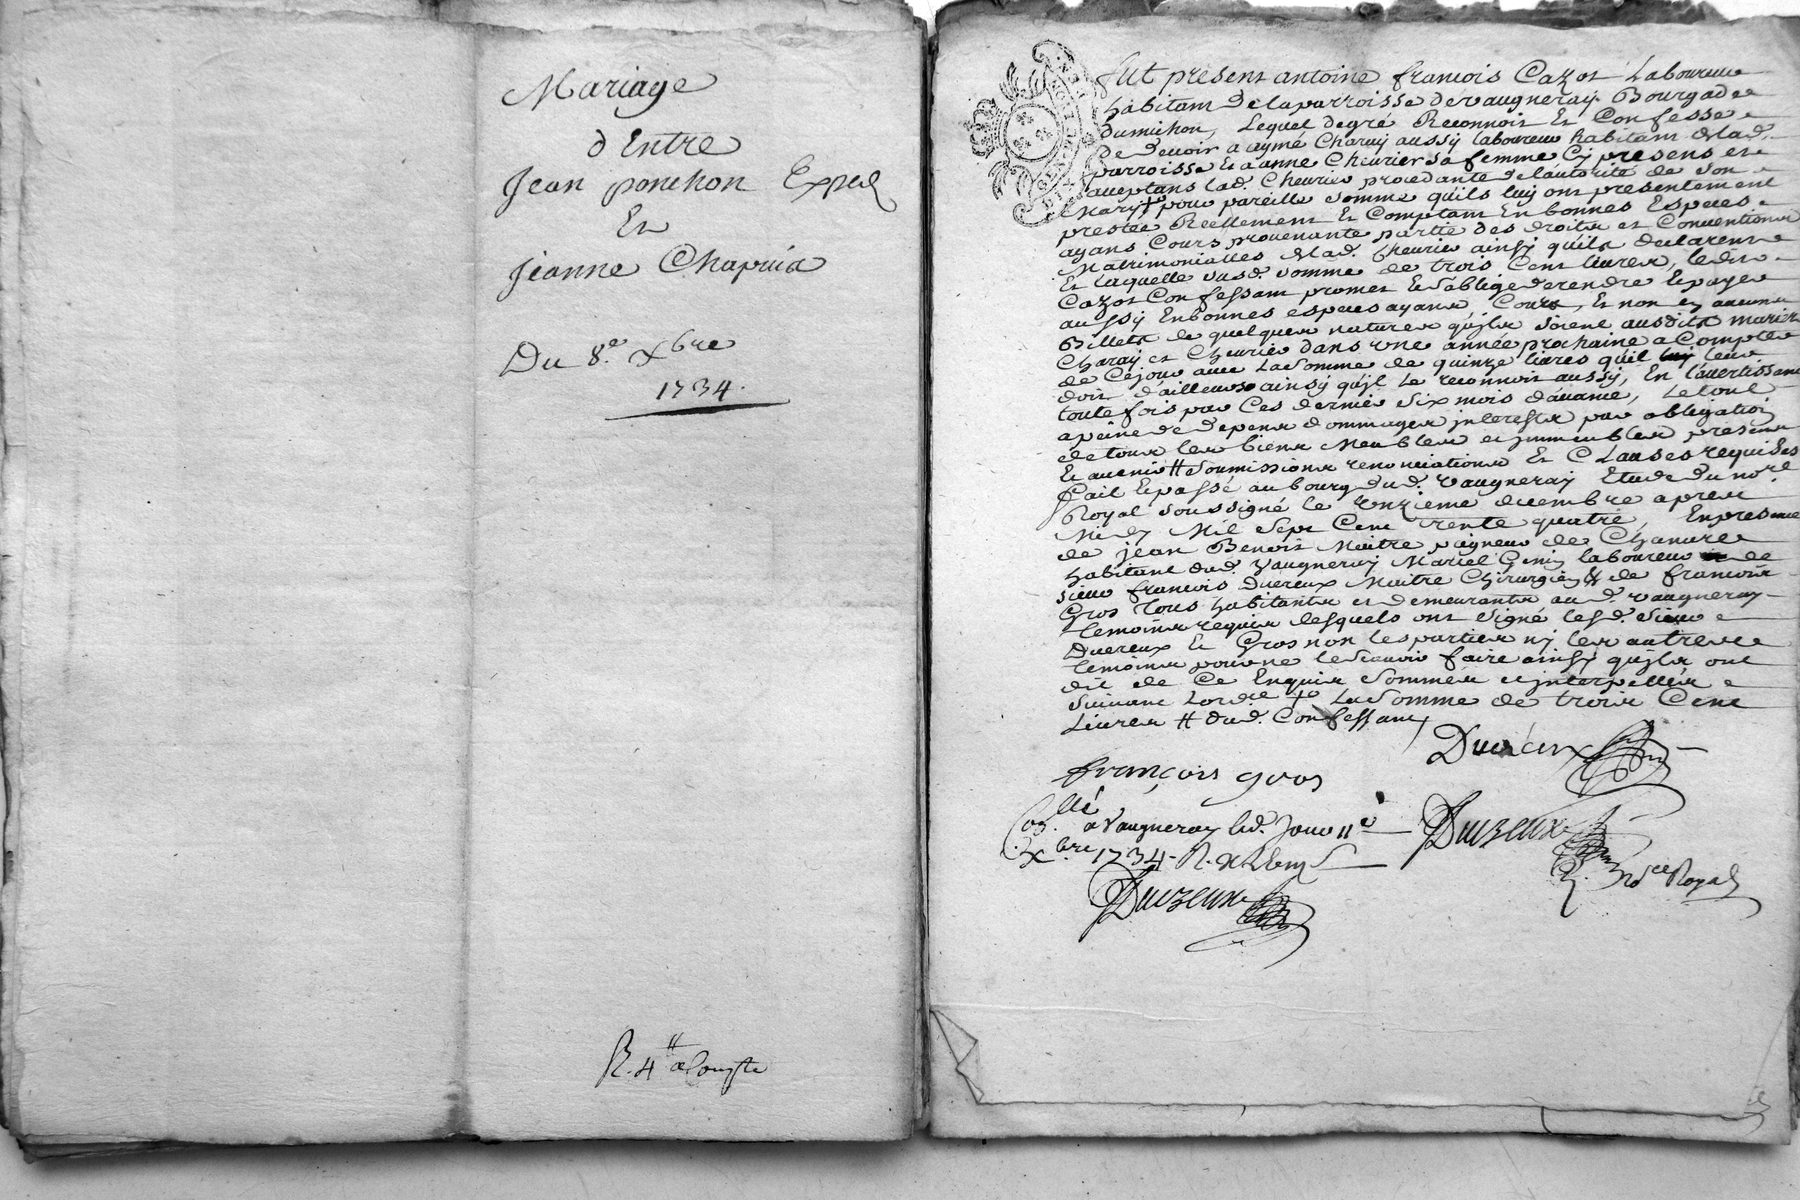 Mariage
d'Entre
Jean ponchon Exped
Et
Jeanne Chapuis
Du 8.e Xbre
1734.
R. 4 ᴴ a Compte
GEN DE LION
Fut present antoine francois Cazot Laboureur
habitant de la parroisse de vaugneray Bourgade
du michon, Lequel degré Reconnoit Et Confesse
De devoir a aymé Charuy aussy laboureur habitant de lad.
parroisse Et a anne Cheurier sa femme Cy presens et
aceptans lad. Cheurier procedante de l'autorité de son
Mary + pour pareille somme qu'ils luy ont presentement
prestée Reellement Et Comptant En bonnes Especes
ayans Cours provenante partie des droits et Conventions
Matrimonialles de lad. Cheurier ainsy qu'ils declarent
Et laquelle susd. somme de trois Cent livres, ledit
Cazot Confessant promet Et s'oblige de rendre Et payer
aussy En bonnes especes ayans Cours, Et non en aucuns
Billets de quelques natures qu'ils soient ausdits mariez
Charuy et Cheurier dans une année prochaine a Compter
de Cejour avec La somme de quinze livres qu'il leur
doit d'ailleurs ainsy qu'il le reconnoit aussy, En l'avertissant
toute fois par Ces derniers six mois d'avance, Le tout
a peine de depens dommages interests par obligation
de tous les biens Meubles et immeubles presens
Et avenir # soumissions renonciations Et Clauses requises
fait Et passé au bourg dud. vaugneray Etude du no.re
Royal soussigné le onzieme decembre apres
Midy Mil sept Cent trente quatre, En presence
de jean Benoit Maitre paigneur de Chanvre
habitant dud. vaugneray Mariel Genin laboureur de
sieur francois Duereux Maitre Chirurgien & de francois
Gros Tous habitants et demeurants aud. vaugneray
temoins requis lesquels ont signé lesd. sieur
Duereux Et Gros non les parties ny les autres
temoins pour ne le scavoir faire ainsy qu'ils ont
dit de Ce Enquis sommés et interpellés
suivant Lord.ce + La somme de trois Cent
Livres # dud. Confessant
Duereux
françois gros
Con.llé a Vaugneray led. Jour 11e
Xbre 1734 - R.
Duereux
Duereux
N.re Royal